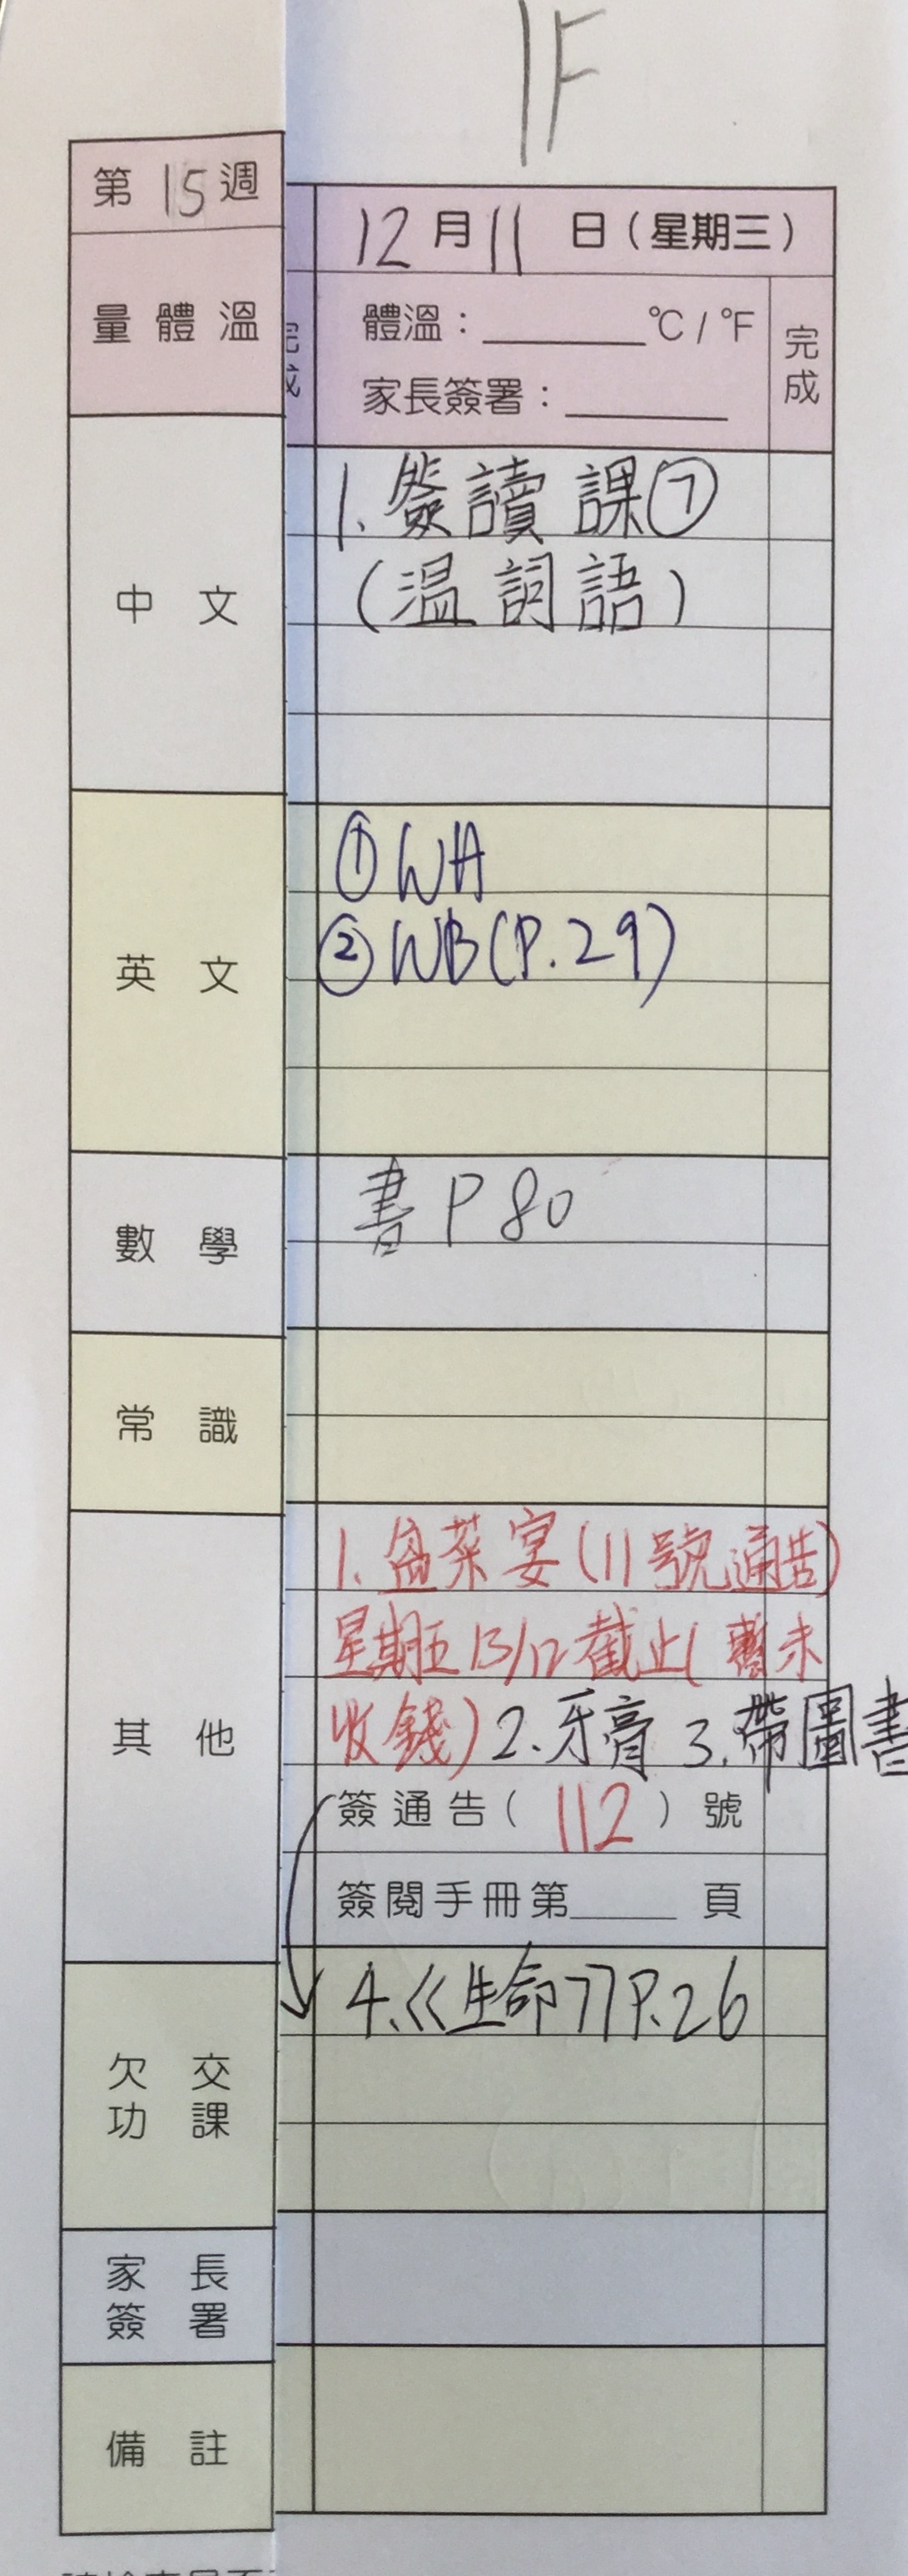 1F
第15週
12月11日(星期三)
量體溫
體溫：______°C/°F
完成
家長簽署：______
中文
1.簽讀課⑦
(温詞語)
英文
①WA
②WB(P.29)
數學
書P80
常識
其他
1.盆菜宴(11號通告)
星期五13/12截止(暫未
收錢)2.牙膏 3.帶圖書
簽通告(112)號
簽閱手冊第____頁
欠交功課
4.《生命》P.26
家長簽署
備註